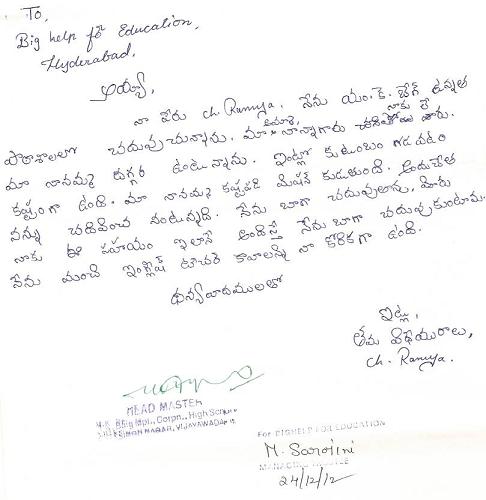 To,
Big help for Education,
Hyderabad.
అయ్యా,
నా పేరు ch. Ramya. నేను యం.కె. బేగ్ ఉన్నత
పాఠశాలలో చదువుచున్నాను. మా అమ్మ, నాన్నగారు నాకు లేరు.
మా నానమ్మ దగ్గర ఉంటున్నాను. ఇంట్లో కుటుంబం గడవటం
కష్టంగా ఉంది. మా నానమ్మ కష్టపడి మిషన్ కుడుతుంది. అందుచేత
నన్ను చదివించ నంటున్నది. నేను బాగా చదువుతాను, మీరు
నాకు ఈ సహాయం ఇలానే అందిస్తే నేను బాగా చదువుకుంటాను.
నేను మంచి ఇంగ్లీష్ టీచర్ కావాలన్నది నా కోరికగా ఉంది.
ధన్యవాదములతో
ఇట్లు,
తమ విధేయురాలు,
ch. Ramya.
HEAD MASTER
M.K. Baig Mpl., Corpn., High School
NAGAR, VIJAYAWADA
For BIGHELP FOR EDUCATION
M. Sarojini
MANAGING TRUSTEE
24/12/12